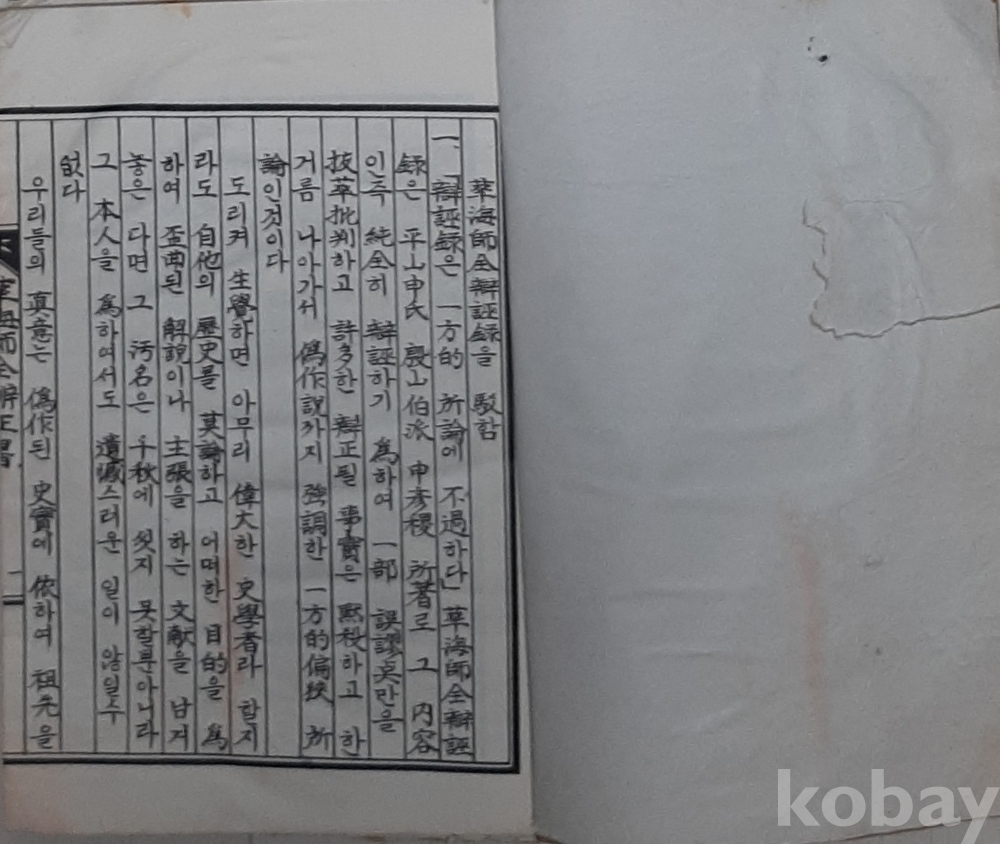 華海師全辯誣録을 駁함
一、「辯誣録은 一方的 所論에 不過하다」 華海師全辯誣
録은 平山申氏 殷山伯派 申彦稷 所著로 그 内容
인즉 純全히 辯誣하기 爲하여 一部 誤謬点만을
抜萃批判하고 許多한 辯正될 事實은 黙殺하고 한
거름 나아가서 僞作説까지 強調한 一方的偏狹 所
論인것이다
도리켜 生覺하면 아무리 偉大한 史學者라 할지
라도 自他의 歷史를 莫論하고 어떠한 目的을 爲
하여 歪曲된 解説이나 主張을 하는 文献을 남겨
놓은 다면 그 汚名은 千秋에 씻지 못할뿐아니라
그 本人을 爲하여서도 遺憾스러운 일이 않일수
없다
우리들의 眞意는 僞作된 史實에 依하여 祖先을
華海師全辨正書
一
kobay